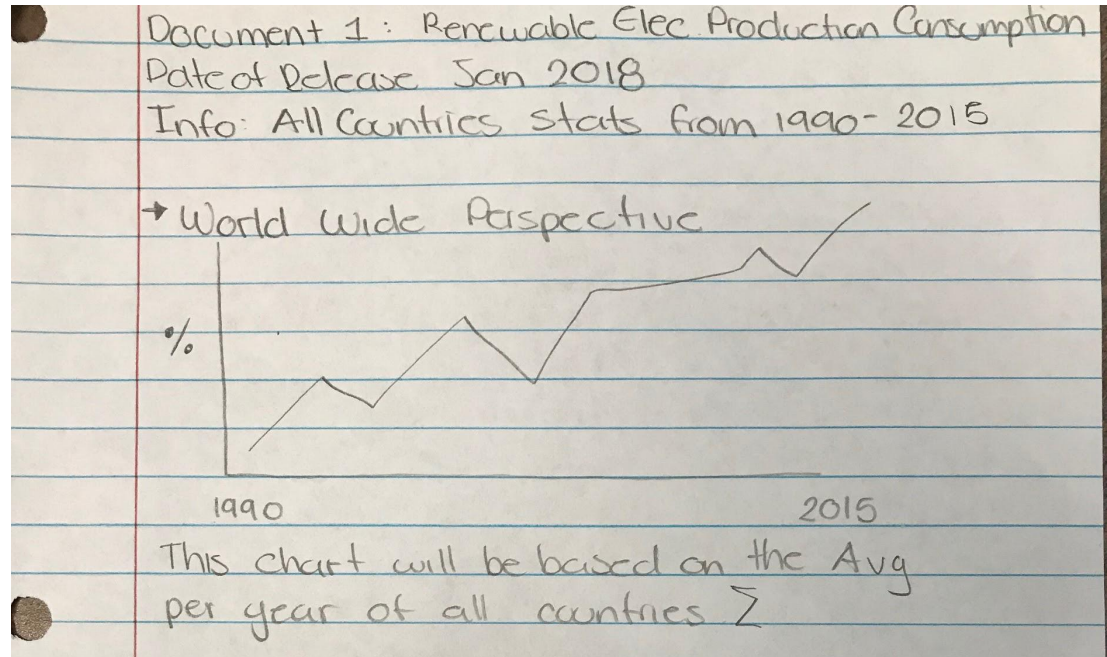 Document 1: Renewable Elec Production Consumption
Date of Release Jan 2018
Info: All Countries stats from 1990-2015
→ World Wide Perspective
%
1990 2015
This chart will be based on the Avg
per year of all countries Σ